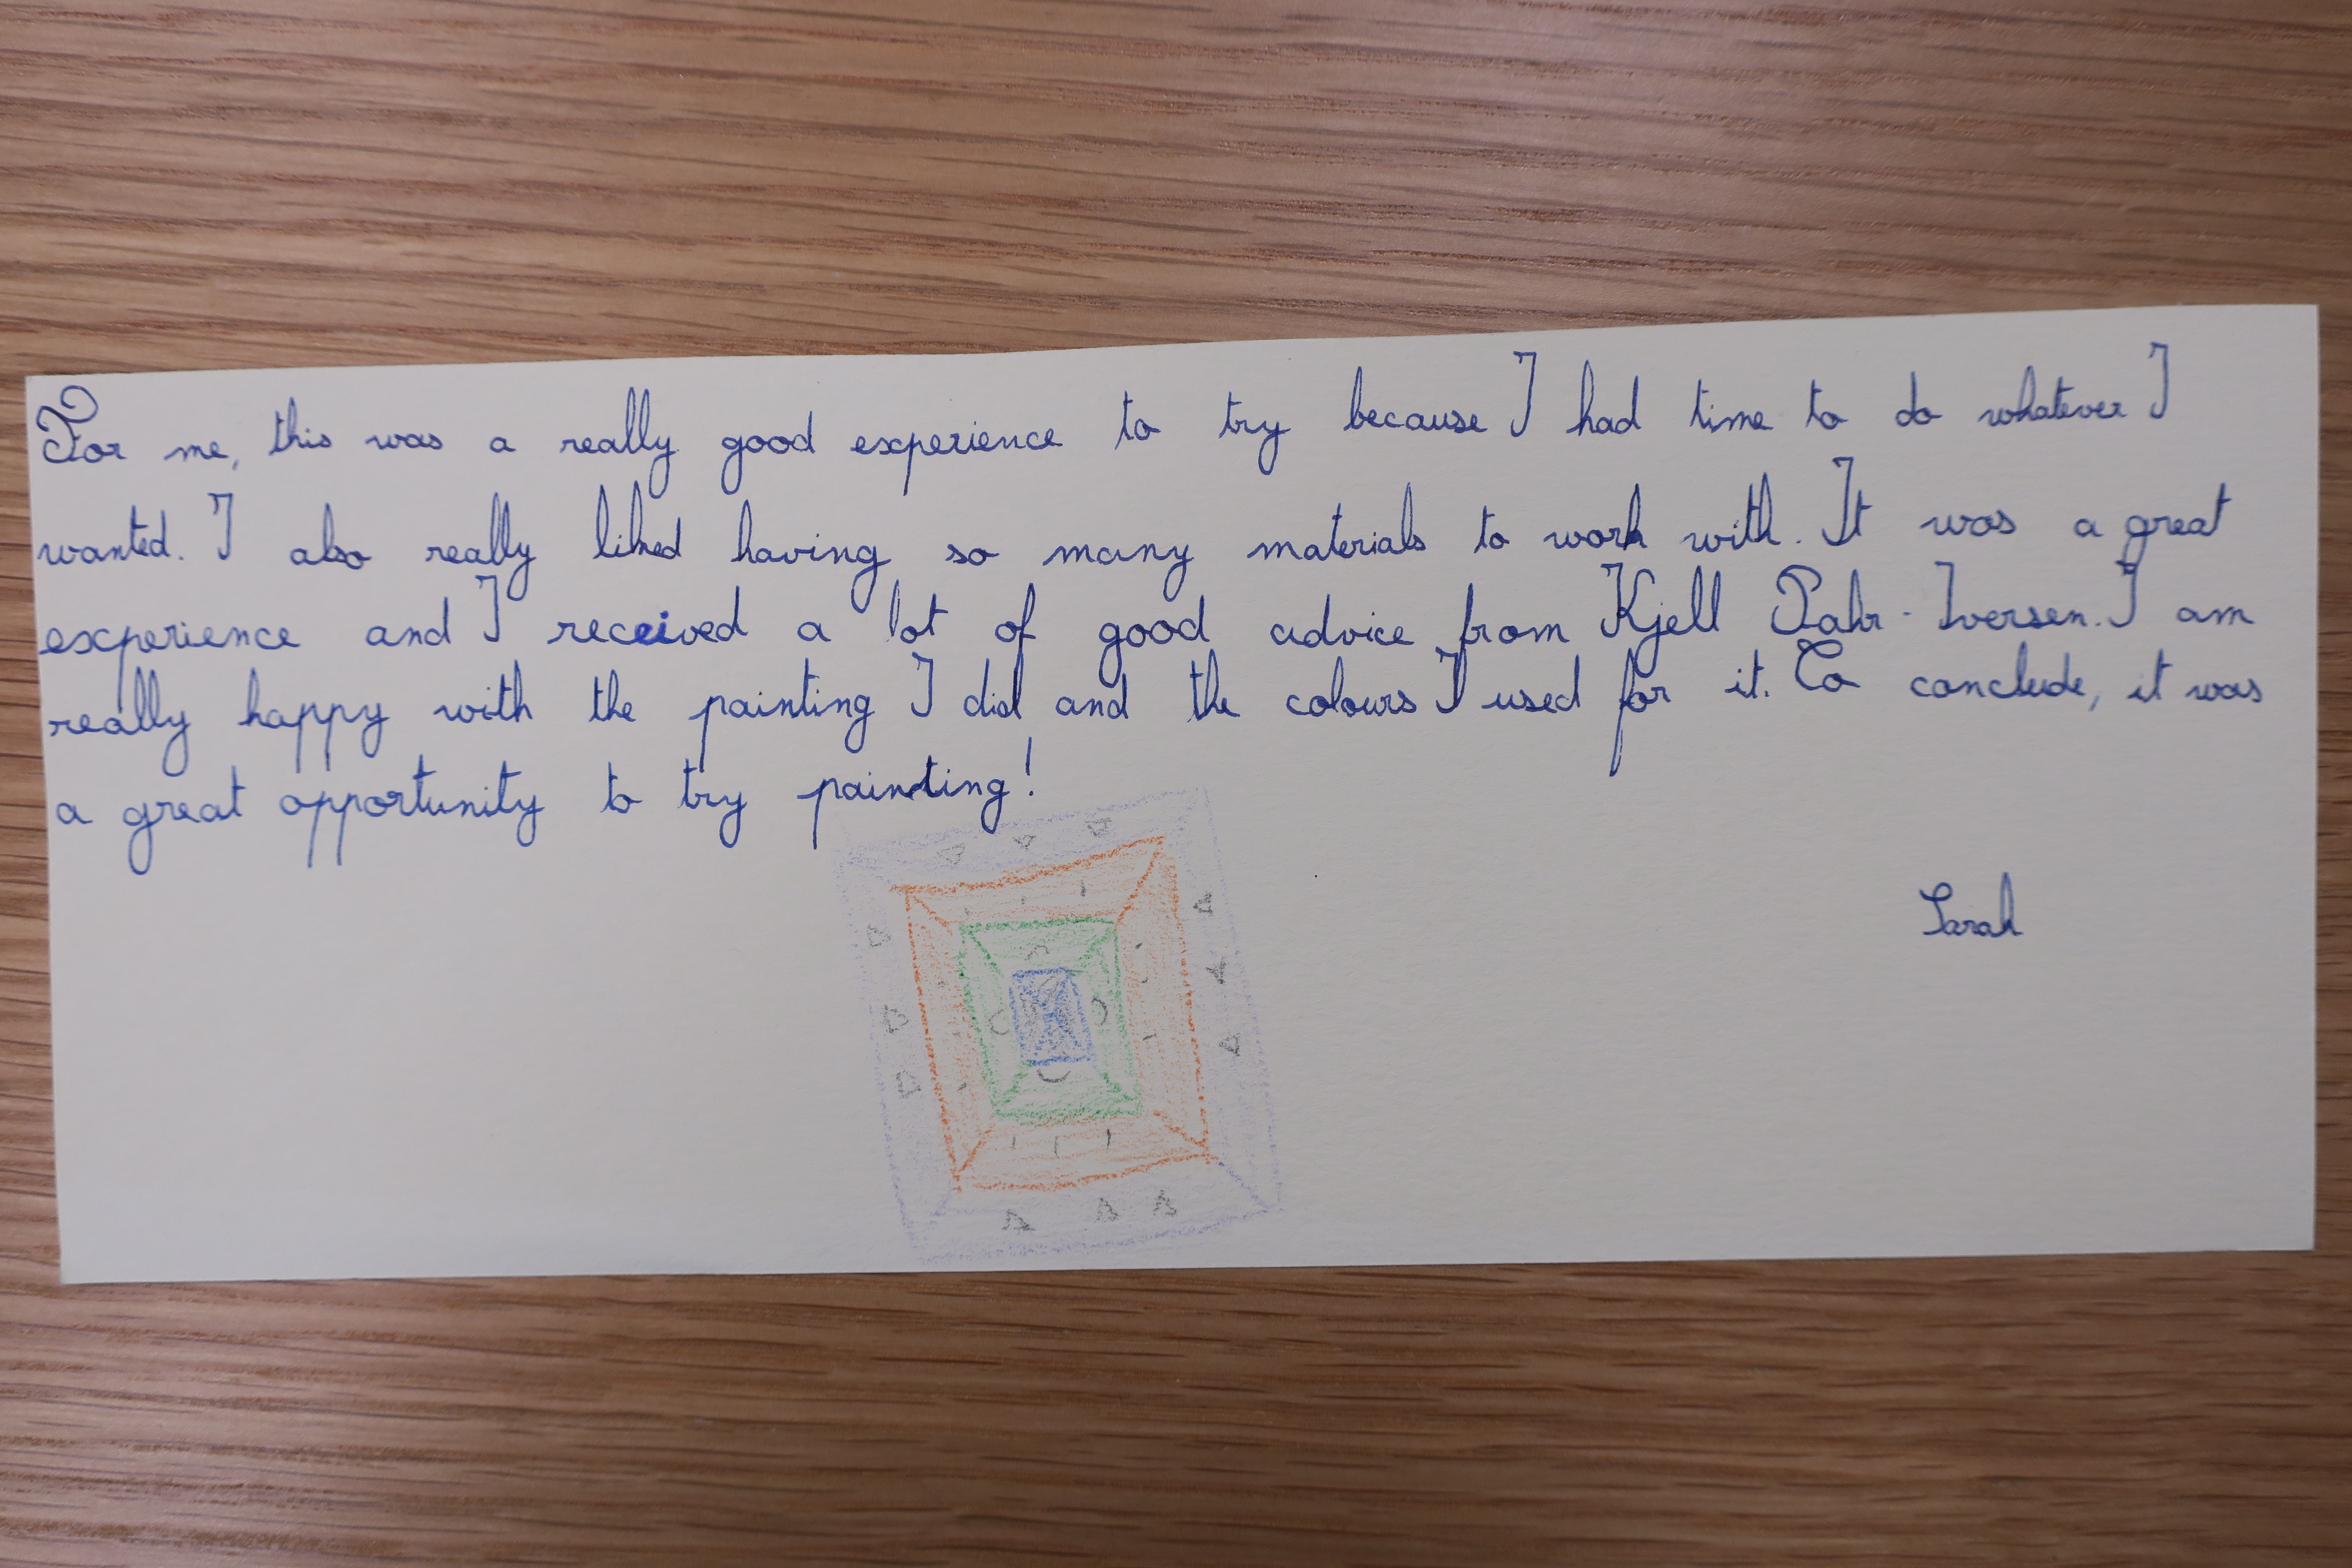 For me, this was a really good experience to try because I had time to do whatever I
wanted. I also really liked having so many materials to work with. It was a great
experience and I received a lot of good advice from Kjell Pahr-Iversen. I am
really happy with the painting I did and the colours I used for it. To conclude, it was
a great opportunity to try painting!
Sarah